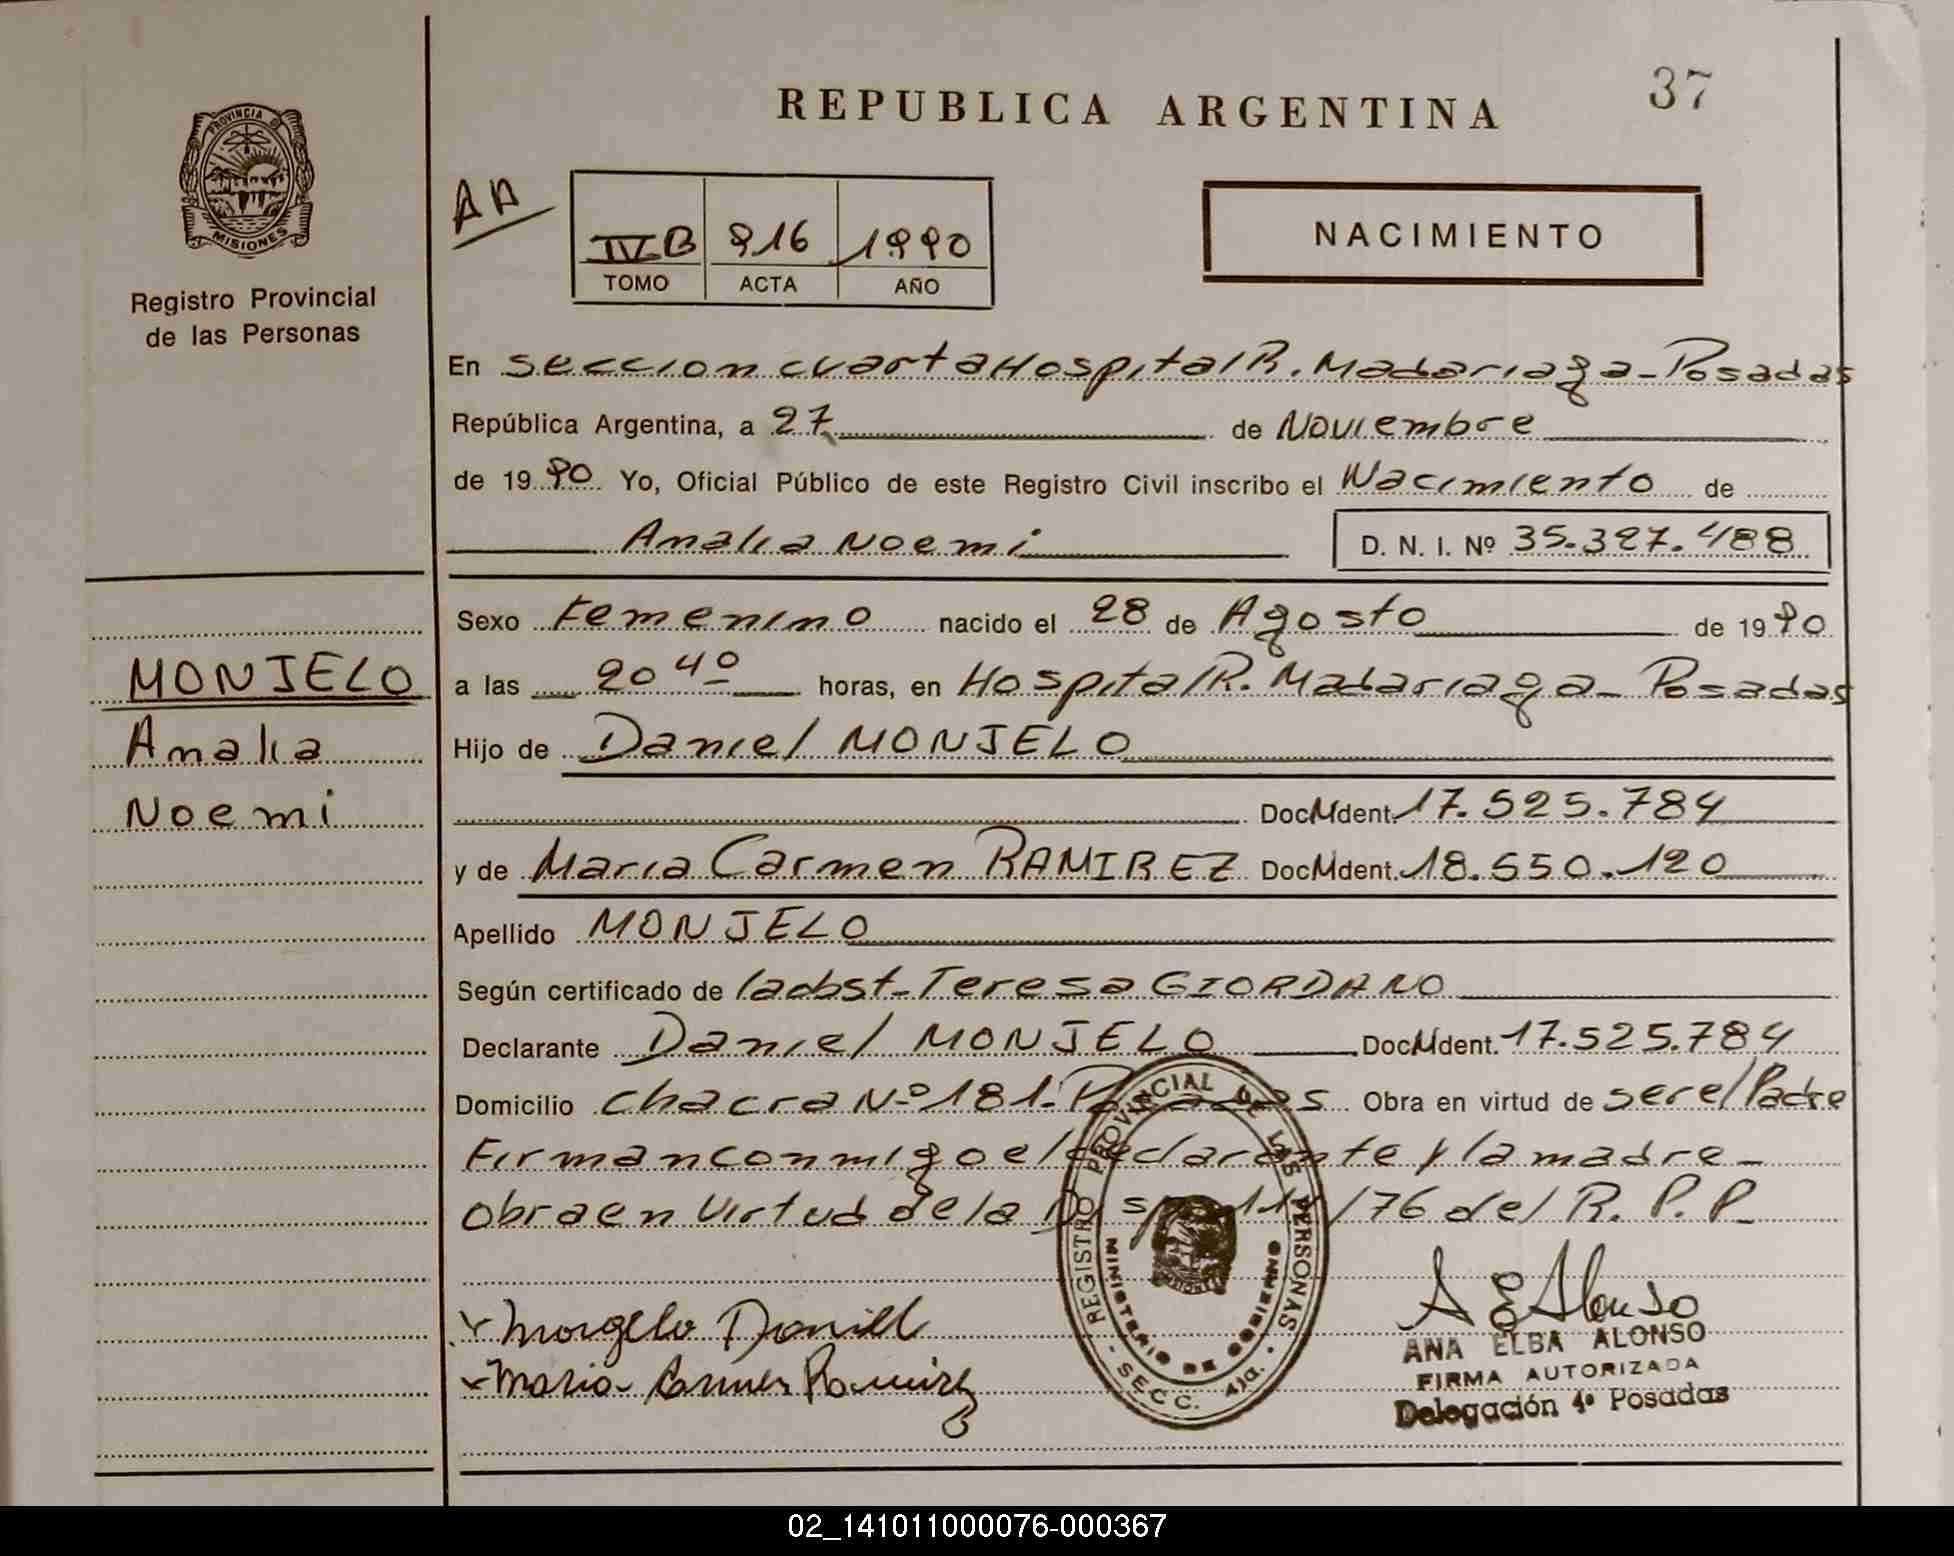 37
REPUBLICA ARGENTINA
PROVINCIA DE
MISIONES
Registro Provincial
de las Personas
AA
IV B 916 1990
TOMO ACTA AÑO
NACIMIENTO
En seccion cuarta Hospital R. Madariaga - Posadas
República Argentina, a 27 de Noviembre
de 1990 Yo, Oficial Público de este Registro Civil inscribo el Nacimiento de
Amalia Noemi D. N. I. Nº 35.327.488
Sexo Femenino nacido el 28 de Agosto de 1990
MONJELO
a las 20 40 horas, en Hospital R. Madariaga - Posadas
Amalia
Hijo de Daniel MONJELO
Noemi
Doc M Ident. 17.525.784
y de Maria Carmen RAMIREZ Doc M Ident. 18.550.120
Apellido MONJELO
Según certificado de la obst - Teresa GIORDANO
Declarante Daniel MONJELO Doc M Ident. 17.525.784
Domicilio chacra Nº 181 - Posadas Obra en virtud de ser el Padre
Firman conmigo el declarante y la madre -
Obra en virtud de la /76 del R. P. P. -
REGISTRO PROVINCIAL DE LAS PERSONAS
MINISTERIO DE GOBIERNO
SECC. 4ta.
Morgelo Daniel
Maria Carmen Ramirez
A E Alonso
ANA ELBA ALONSO
FIRMA AUTORIZADA
Delegación 4ª Posadas
02_141011000076-000367